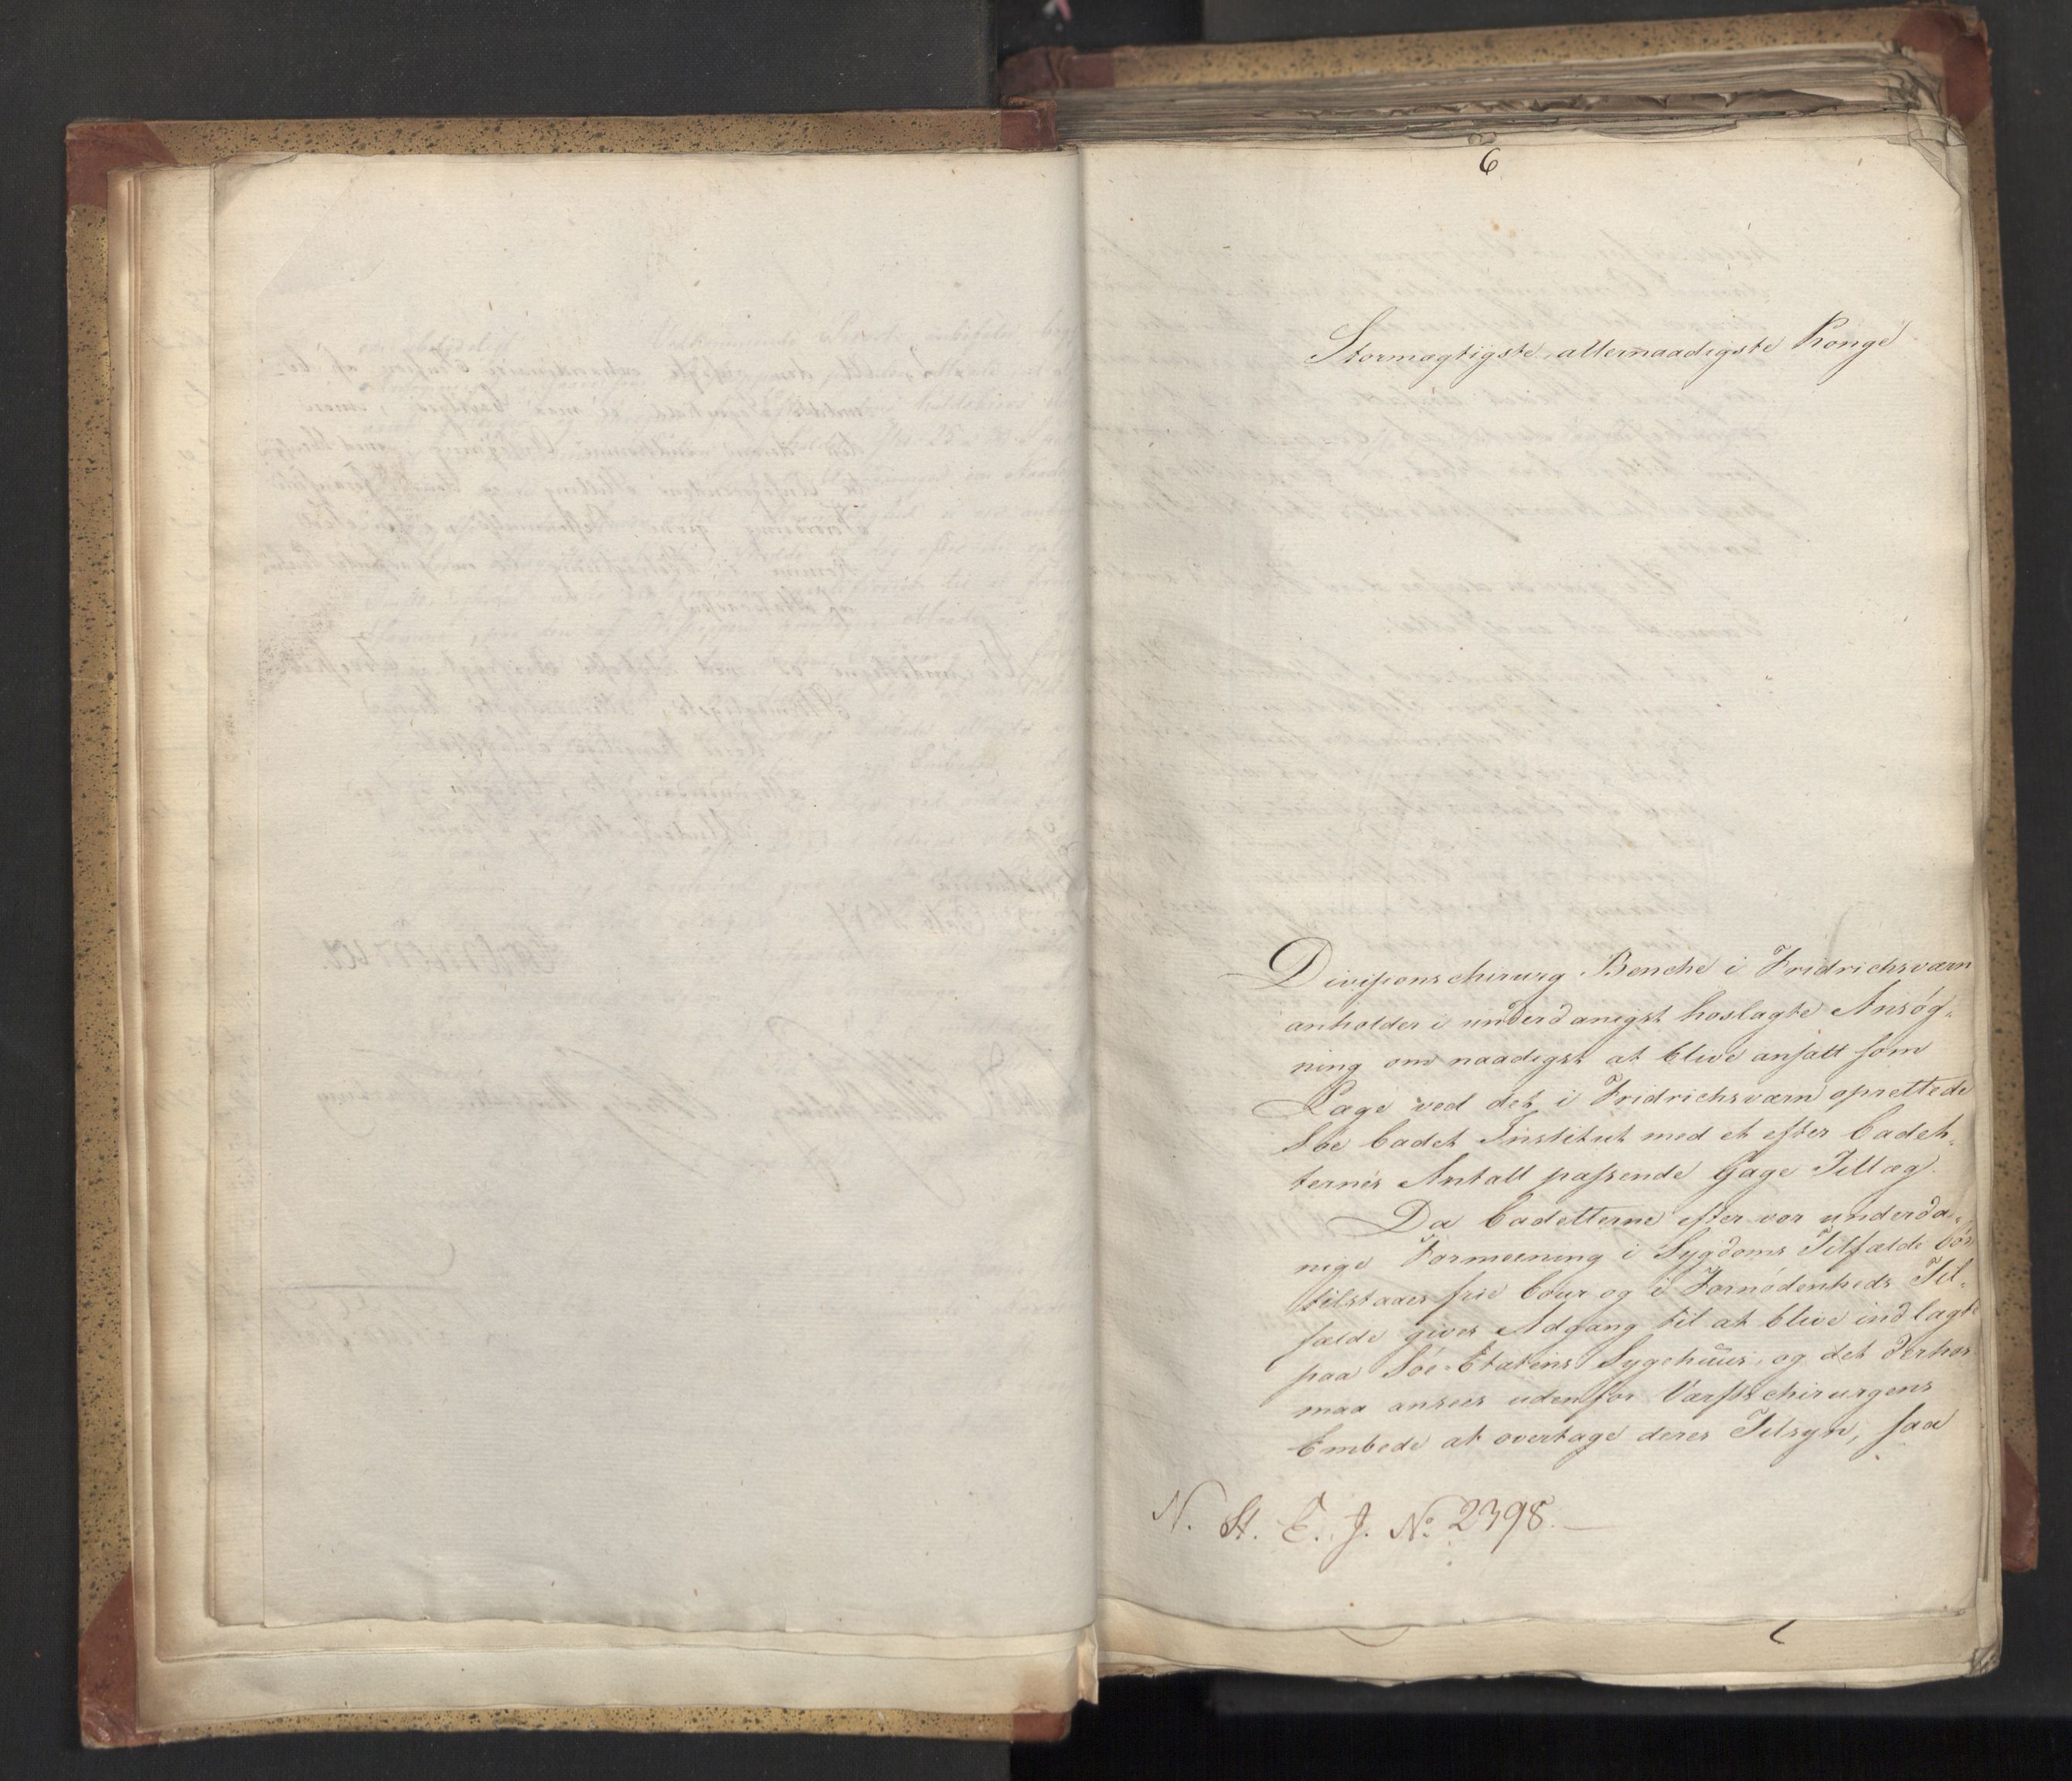 6
Stormægtigste, allernaadigste Konge
Divisionschirurg Benche i Fridrichsværn
anholder i underdanigst hoslagte Ansøg-
ning om naadigst at blive ansatt som
Læge ved det i Fridrichsværn oprettede
Søe Cadet Institut med et efter Cadet-
ternes Antall passende Gage Tillæg.
Da Cadetterne efter vor underda-
nige Formeening i Sygdoms Tilfælde bør
tilstaaes frie Cour og i Fornødenheds Til-
fælde gives Adgang til at blive indlagte
paa Søe-Etatens Sygehuus, og det derhos
maa ansees udenfor Værftschirurgens
Embede at overtage deres Tilsyn, saa
N. St. E. J. No 2398.